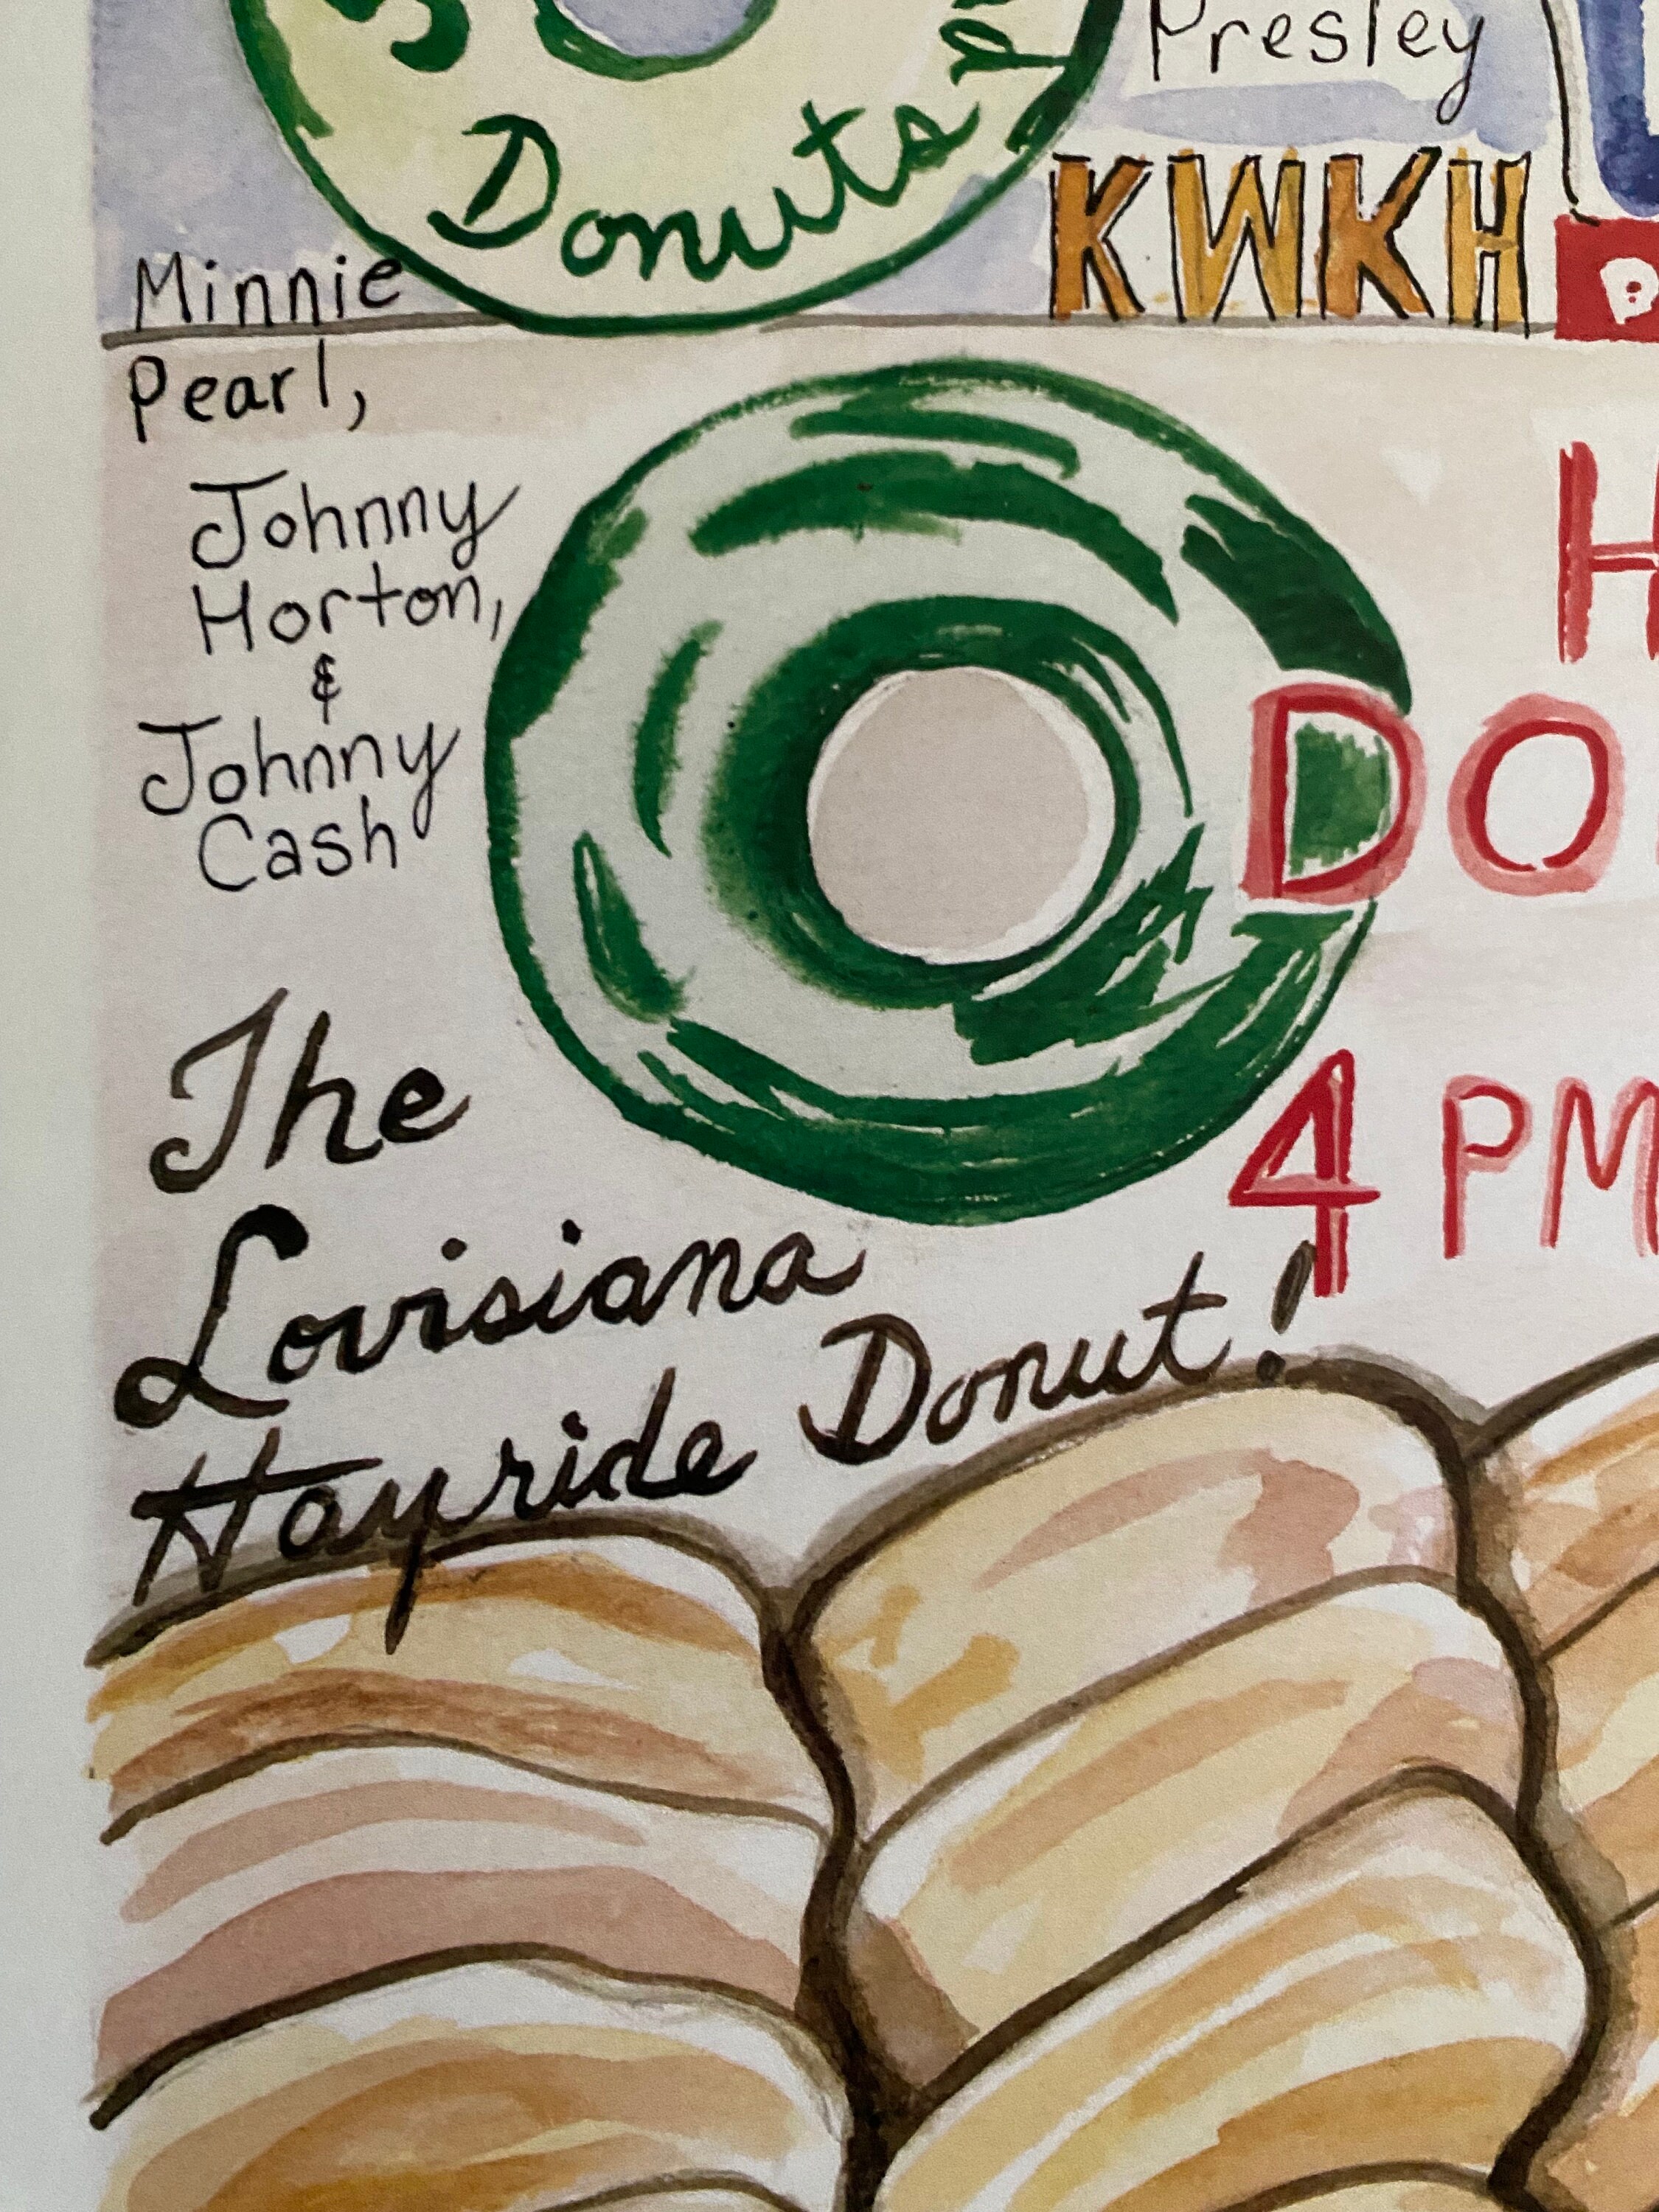 Donuts
Presley
KWKH
Minnie
Pearl,
Johnny
Horton,
&
Johnny
Cash
H
DO
4 PM
The
Louisiana
Hayride Donut!